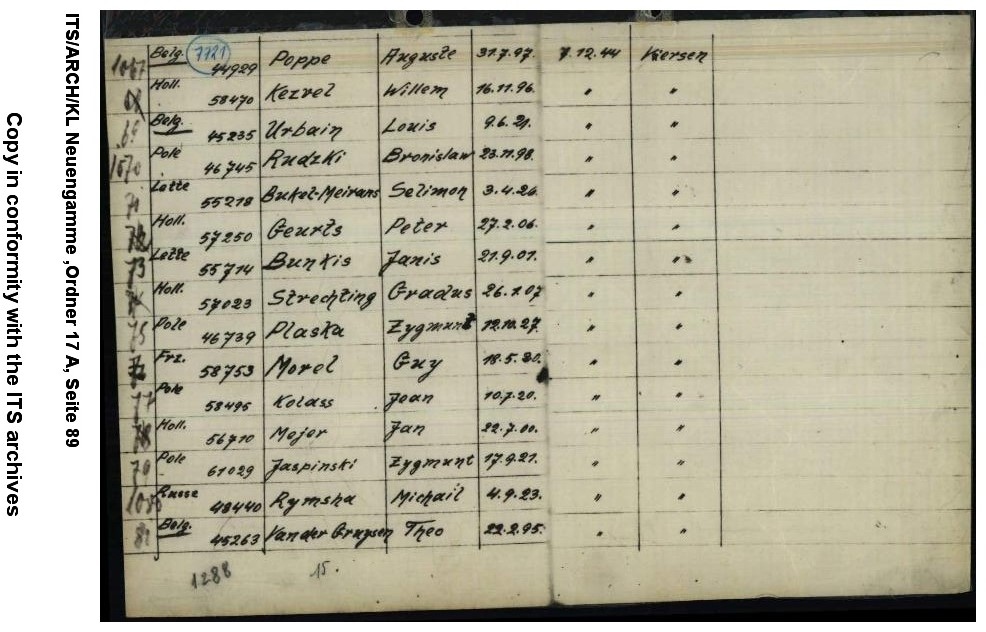 Copy in conformity with the ITS archives
ITS/ARCH/KL Neuengamme ,Ordner 17 A, Seite 89
1067 Belg. 7721 44929 Poppe Auguste 31.7.97. 7.12.44 Viersen
Holl. 58470 Kezvel Willem 16.11.96. " "
69 Belg. 45235 Urbain Louis 9.6.21. " "
1070 Pole 46745 Rudzki Bronislaw 23.11.98. " "
71 Lette 55218 Bukel-Meirans Selimon 3.4.26. " "
Holl. 57250 Geurts Peter 27.2.06. " "
73 Lette 55714 Bunkis Janis 21.9.01. " "
Holl. 57023 Strechting Gradus 26.1.07 " "
75 Pole 46739 Plaska Zygmunt 12.10.27. " "
Frz. 58753 Morel Guy 18.5.20. " "
77 Pole 58495 Kolass Jean 10.7.20. " "
78 Holl. 56710 Mejer Jan 22.7.00. " "
79 Pole 61029 Jaspinski Zygmunt 17.9.21. " "
1080 Russe 48440 Rymsha Michail 4.9.23. " "
81 Belg. 45263 Van der Gruysen Theo 22.2.95. " "
1288 15.